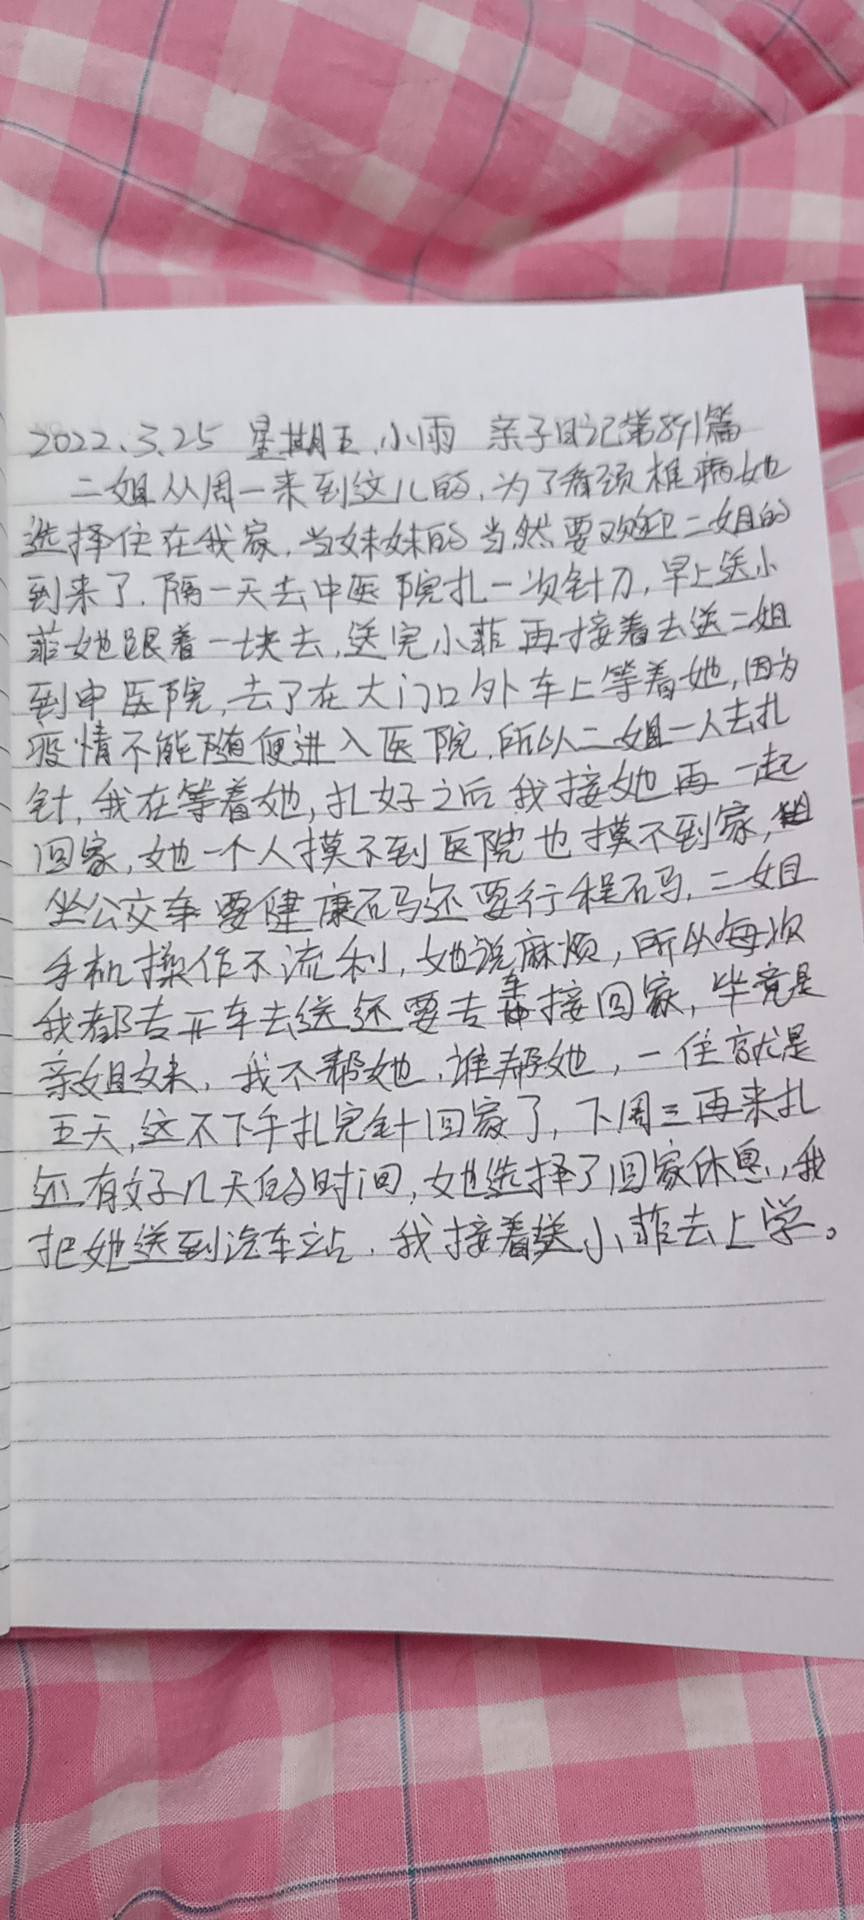 2022.3.25 星期五.小雨 亲子日记第891篇
二姐从周一来到这儿的,为了看颈椎病她
选择住在我家,当妹妹的当然要欢迎二姐的
到来了.隔一天去中医院扎一次针刀,早上送小
菲她跟着一块去,送完小菲再接着去送二姐
到中医院,去了在大门口外车上等着她,因为
疫情不能随便进入医院.所以二姐一人去扎
针,我在等着她,扎好之后我接她再一起
回家,她一个人摸不到医院也摸不到家,
坐公交车要健康码还要行程码,二姐
手机操作不流利,她说麻烦,所以每次
我都去开车去送还要去车接回家,毕竟是
亲姐妹,我不帮她,谁帮她,一住就是
五天,这不下午扎完针回家了,下周三再来扎
还有好几天的时间,她选择了回家休息,我
把她送到汽车站.我接着送小菲去上学。